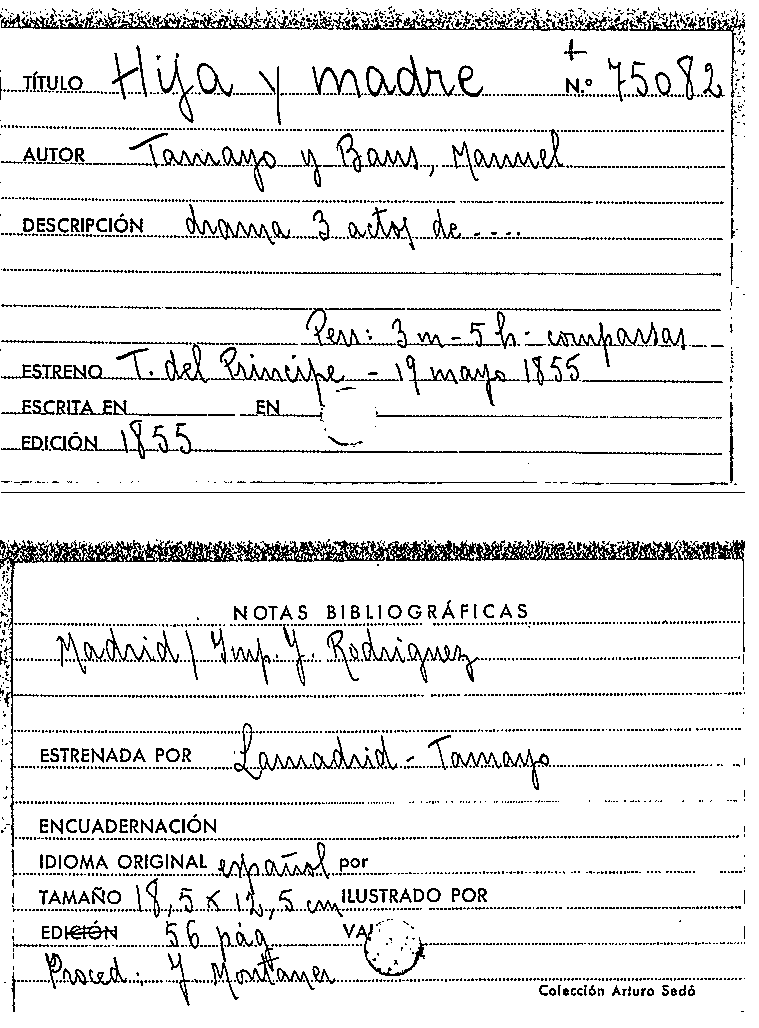 TÍTULO Hija y madre N.º 75082
AUTOR Tamayo y Baus, Manuel
DESCRIPCIÓN drama 3 actos de ....
Pers: 3 m - 5 h - comparsas
ESTRENO T. del Principe - 19 mayo 1855
ESCRITA EN EN
EDICIÓN 1855
NOTAS BIBLIOGRÁFICAS
Madrid / Imp. J. Rodriguez
ESTRENADA POR Lamadrid - Tamayo
ENCUADERNACIÓN
IDIOMA ORIGINAL español por
TAMAÑO 18,5 x 12,5 cm ILUSTRADO POR
EDICIÓN 56 pág
Proced: J Montaner
Colección Arturo Sedó